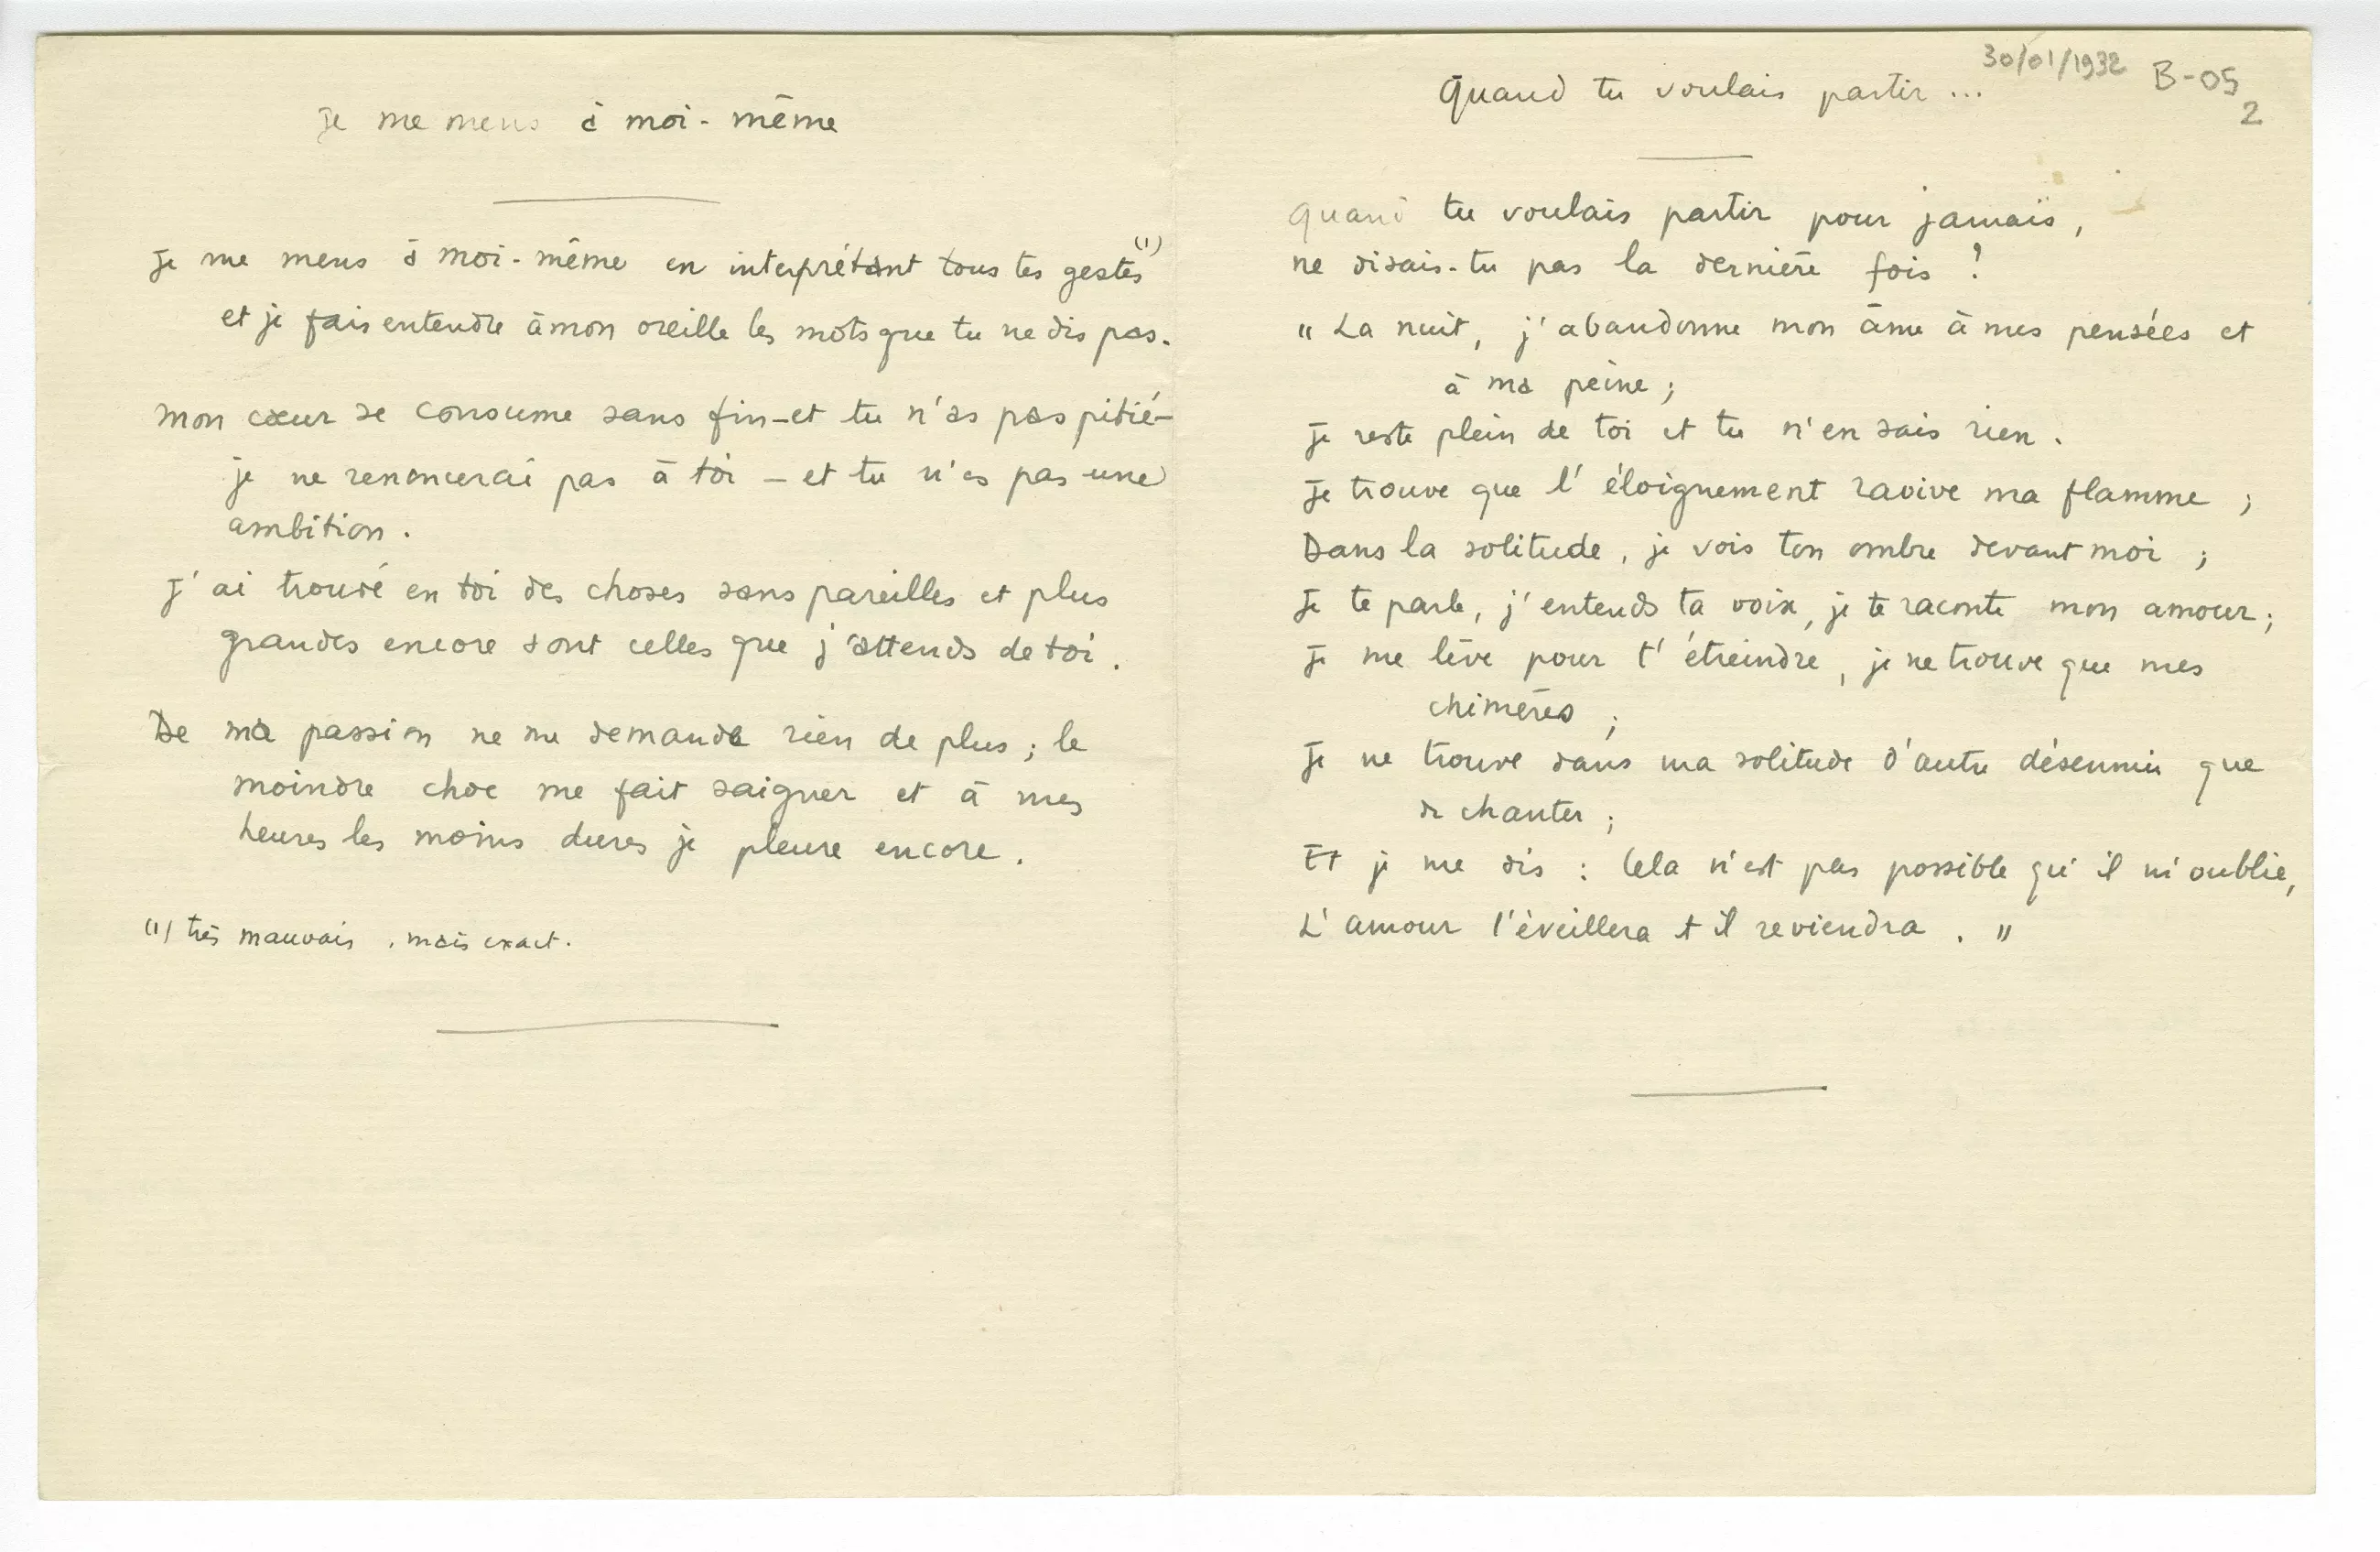 Je me mens à moi-même
Je me mens à moi-même en interprétant tous tes gestes (1)
et je fais entendre à mon oreille les mots que tu ne dis pas.
Mon cœur se consume sans fin – et tu n'as pas pitié –
je ne renoncerai pas à toi – et tu n'es pas une
ambition.
J'ai trouvé en toi des choses sans pareilles et plus
grandes encore sont celles que j'attends de toi.
De ma passion ne me demande rien de plus ; le
moindre choc me fait saigner et à mes
heures les moins dures je pleure encore.
(1) très mauvais, mais exact.
30/01/1932 B-05
2
Quand tu voulais partir ...
Quand tu voulais partir pour jamais,
ne disais-tu pas la dernière fois ?
" La nuit, j'abandonne mon âme à mes pensées et
à ma peine ;
Je reste plein de toi et tu n'en sais rien.
Je trouve que l'éloignement ravive ma flamme ;
Dans la solitude, je vois ton ombre devant moi ;
Je te parle, j'entends ta voix, je te raconte mon amour ;
Je me lève pour t'étreindre, je ne trouve que mes
chimères ;
Je ne trouve dans ma solitude d'autre désennui que
de chanter ;
Et je me dis : Cela n'est pas possible qu'il m'oublie,
L'amour l'éveillera et il reviendra. "